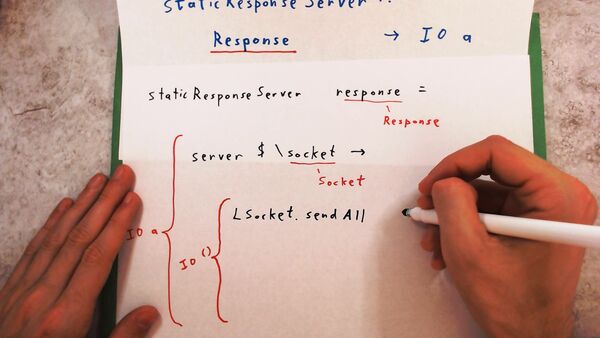 staticResponseServer ::
Response → IO a
staticResponseServer response =
Response
server $ \socket →
Socket
IO a
LSocket.sendAll
IO ()